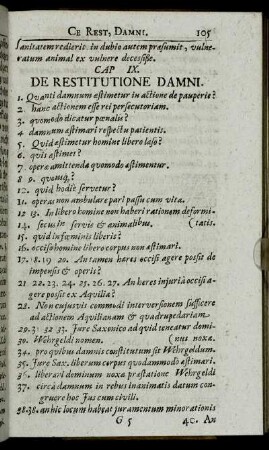 CE REST, DAMNI. 105
sanitatem redierit. in dubio autem præsumit, vulne-
ratum animal ex vulnere decessisse.
CAP IX.
DE RESTITUTIONE DAMNI.
1. Quanti damnum æstimetur in actione de pauperie?
2. hanc actionem esse rei persecutoriam.
3. quomodo dicatur pœnalis?
4 damnum æstimari respectu patientis.
5. Quid æstimetur homine libero læso?
6. quis æstimet?
7. operæ amittendæ quomodo æstimentur.
8 9. quousq;?
10. quid hodiè servetur?
11. operas non ambulare pari passu cum vita.
12 13. In libero homine non haberi rationem deformi-
14. secus in servis & animalibus. (tatis.
15. quid in fœminis liberis?
16. occiso homine libero corpus non æstimari.
17. 18. 19 20. An tamen heres occisi agere possit de
impensis & operis?
21 22. 23. 24. 25. 26. 27. An heres injuriâ occisi a-
gere possit ex Aquiliâ?
28. Non cujusvis commodi interversionem sufficere
ad actionem Aquilianam & quadrupedariam.
29. 31. 32 33. Jure Saxonico ad quid teneatur domi-
30. Wehrgeldi nomen. (nus noxæ.
34. pro quibus damnis constitutum sit Wehrgeldum.
35. Jure Sax. liberum corpus quodammodo æstimari.
36. liberari dominum noxæ præstatione Wehrgeldi
37. circa damnum in rebus inanimatis datum con-
gruere hoc Jus cum civili.
38. 38. an hic locum habeat juramentum minorationis
G 5 40. An